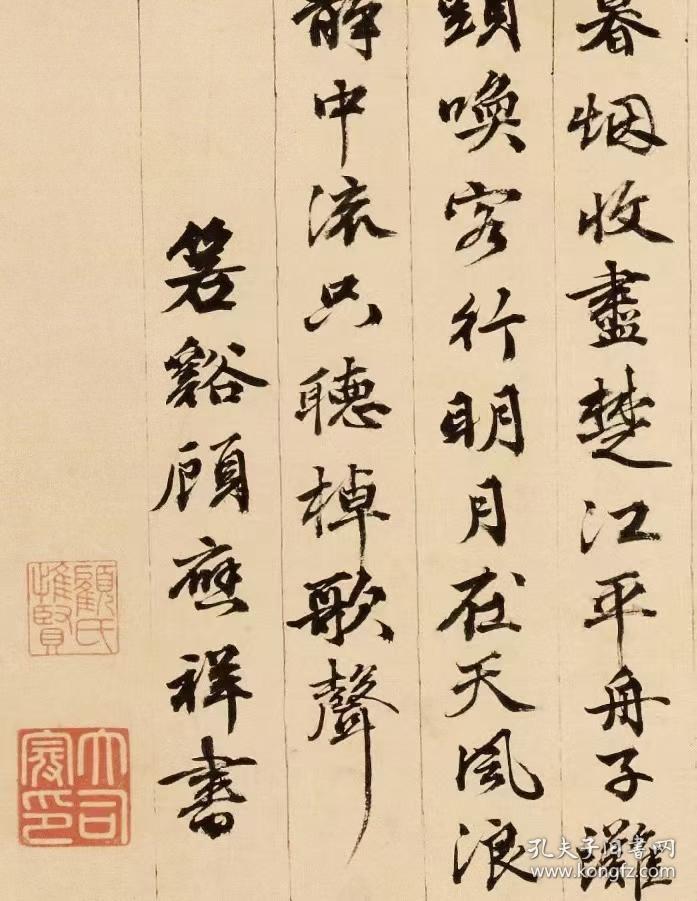 暑烟收盡楚江平舟子灘
頭喚客行明月在天風浪
静中流只聽棹歌聲
箬谿顧應祥書
顧氏惟賢
大司寇印
孔夫子旧书网
www.kongfz.com